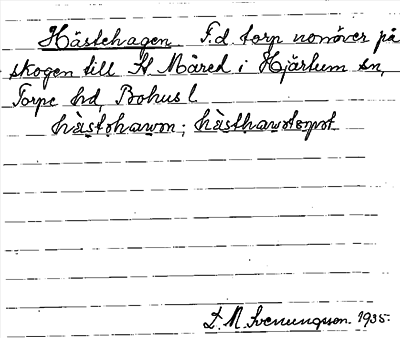 Hästehagen F.d. torp uonöver på
skogen till St Måred i Hjärtum sn,
Torpe hd, Bohusl
hàstəhawən; hàsthawətorpət
L. M. Svenungsson. 1935.